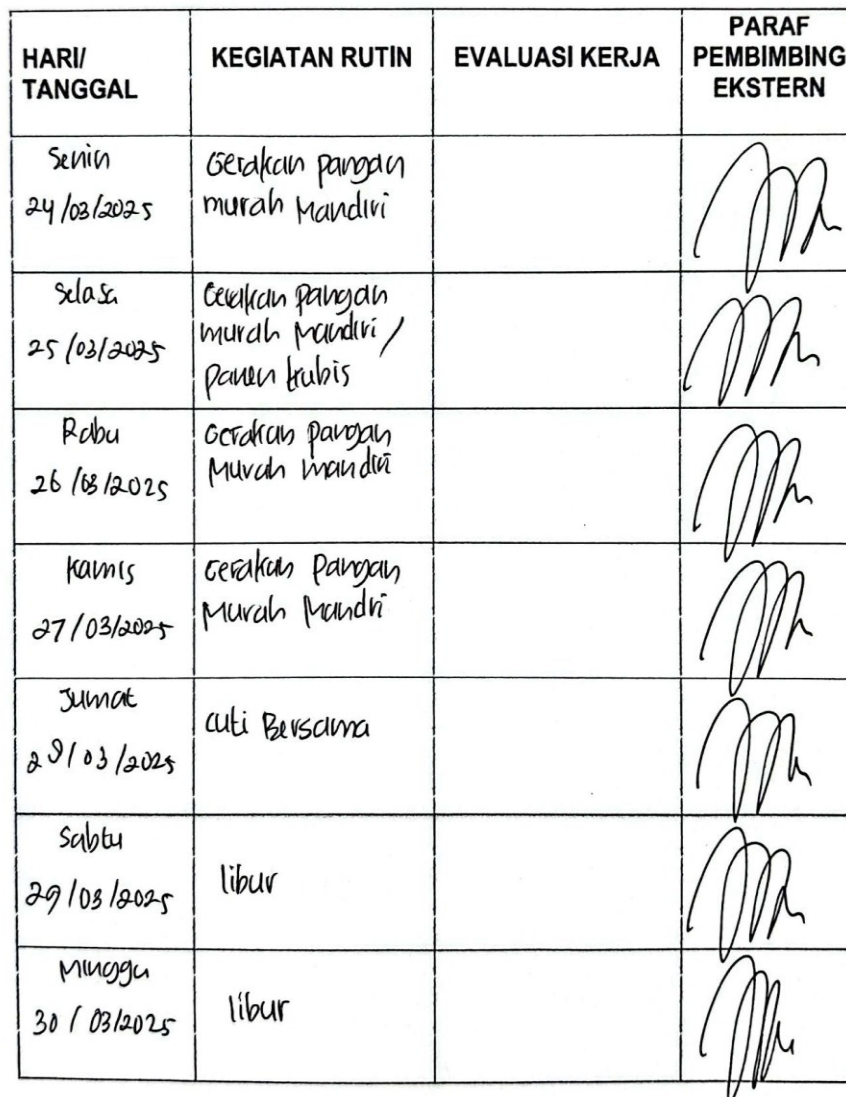 HARI/
TANGGAL
KEGIATAN RUTIN
EVALUASI KERJA
PARAF
PEMBIMBING
EKSTERN
Senin
24/03/2025
Gerakan pangan
murah Mandiri
Selasa
25/03/2025
Gerakan Pangan
murah Mandiri /
panen kubis
Rabu
26/03/2025
Gerakan pangan
Murah mandiri
Kamis
27/03/2025
Gerakan Pangan
Murah Mandri
Jumat
28/03/2025
cuti Bersama
Sabtu
29/03/2025
libur
Minggu
30/03/2025
libur